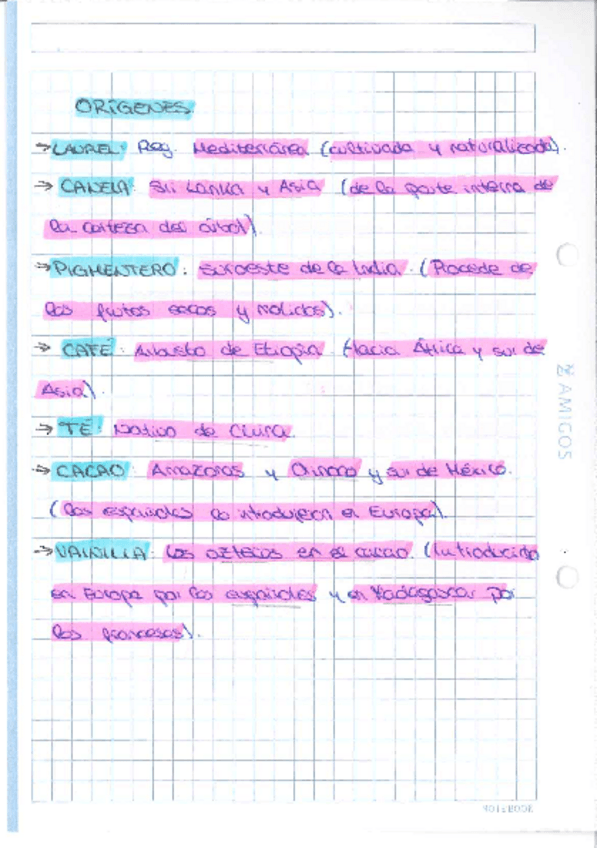 ORÍGENES
→ LAUREL: Reg. Mediterránea (cultivada y naturalizada).
→ CANELA: Sri Lanka y Asia (de la parte interna de
la corteza del árbol).
→ PIGMENTERO: Suroeste de la India. (Procede de
los frutos secos y molidos).
→ CAFÉ: Arbusto de Etiopía. (Hacia África y sur de
Asia).
→ TÉ: Nativo de China.
→ CACAO: Amazonas y Orinoco y sur de México.
(los españoles lo introdujeron en Europa).
→ VAINILLA: Los aztecas en el cacao. (Introducido
en Europa por los españoles y en Madagascar por
los franceses).
AMIGOS